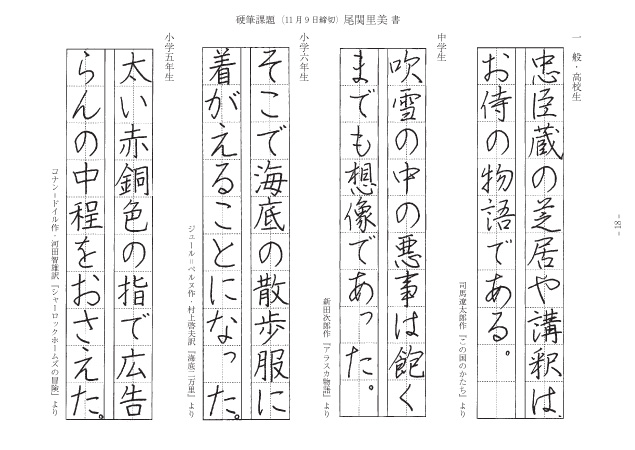 硬筆課題（11月9日締切）尾関里美 書
一般・高校生
忠臣蔵の芝居や講釈は、
お侍の物語である。
司馬遼太郎作『この国のかたち』より
中学生
吹雪の中の悪事は飽く
までも想像であった。
新田次郎作『アラスカ物語』より
小学六年生
そこで海底の散歩服に
着がえることになった。
ジュール＝ベルヌ作・村上啓夫訳『海底二万里』より
小学五年生
太い赤銅色の指で広告
らんの中程をおさえた。
コナン＝ドイル作・河田智雄訳『シャーロックホームズの冒険』より